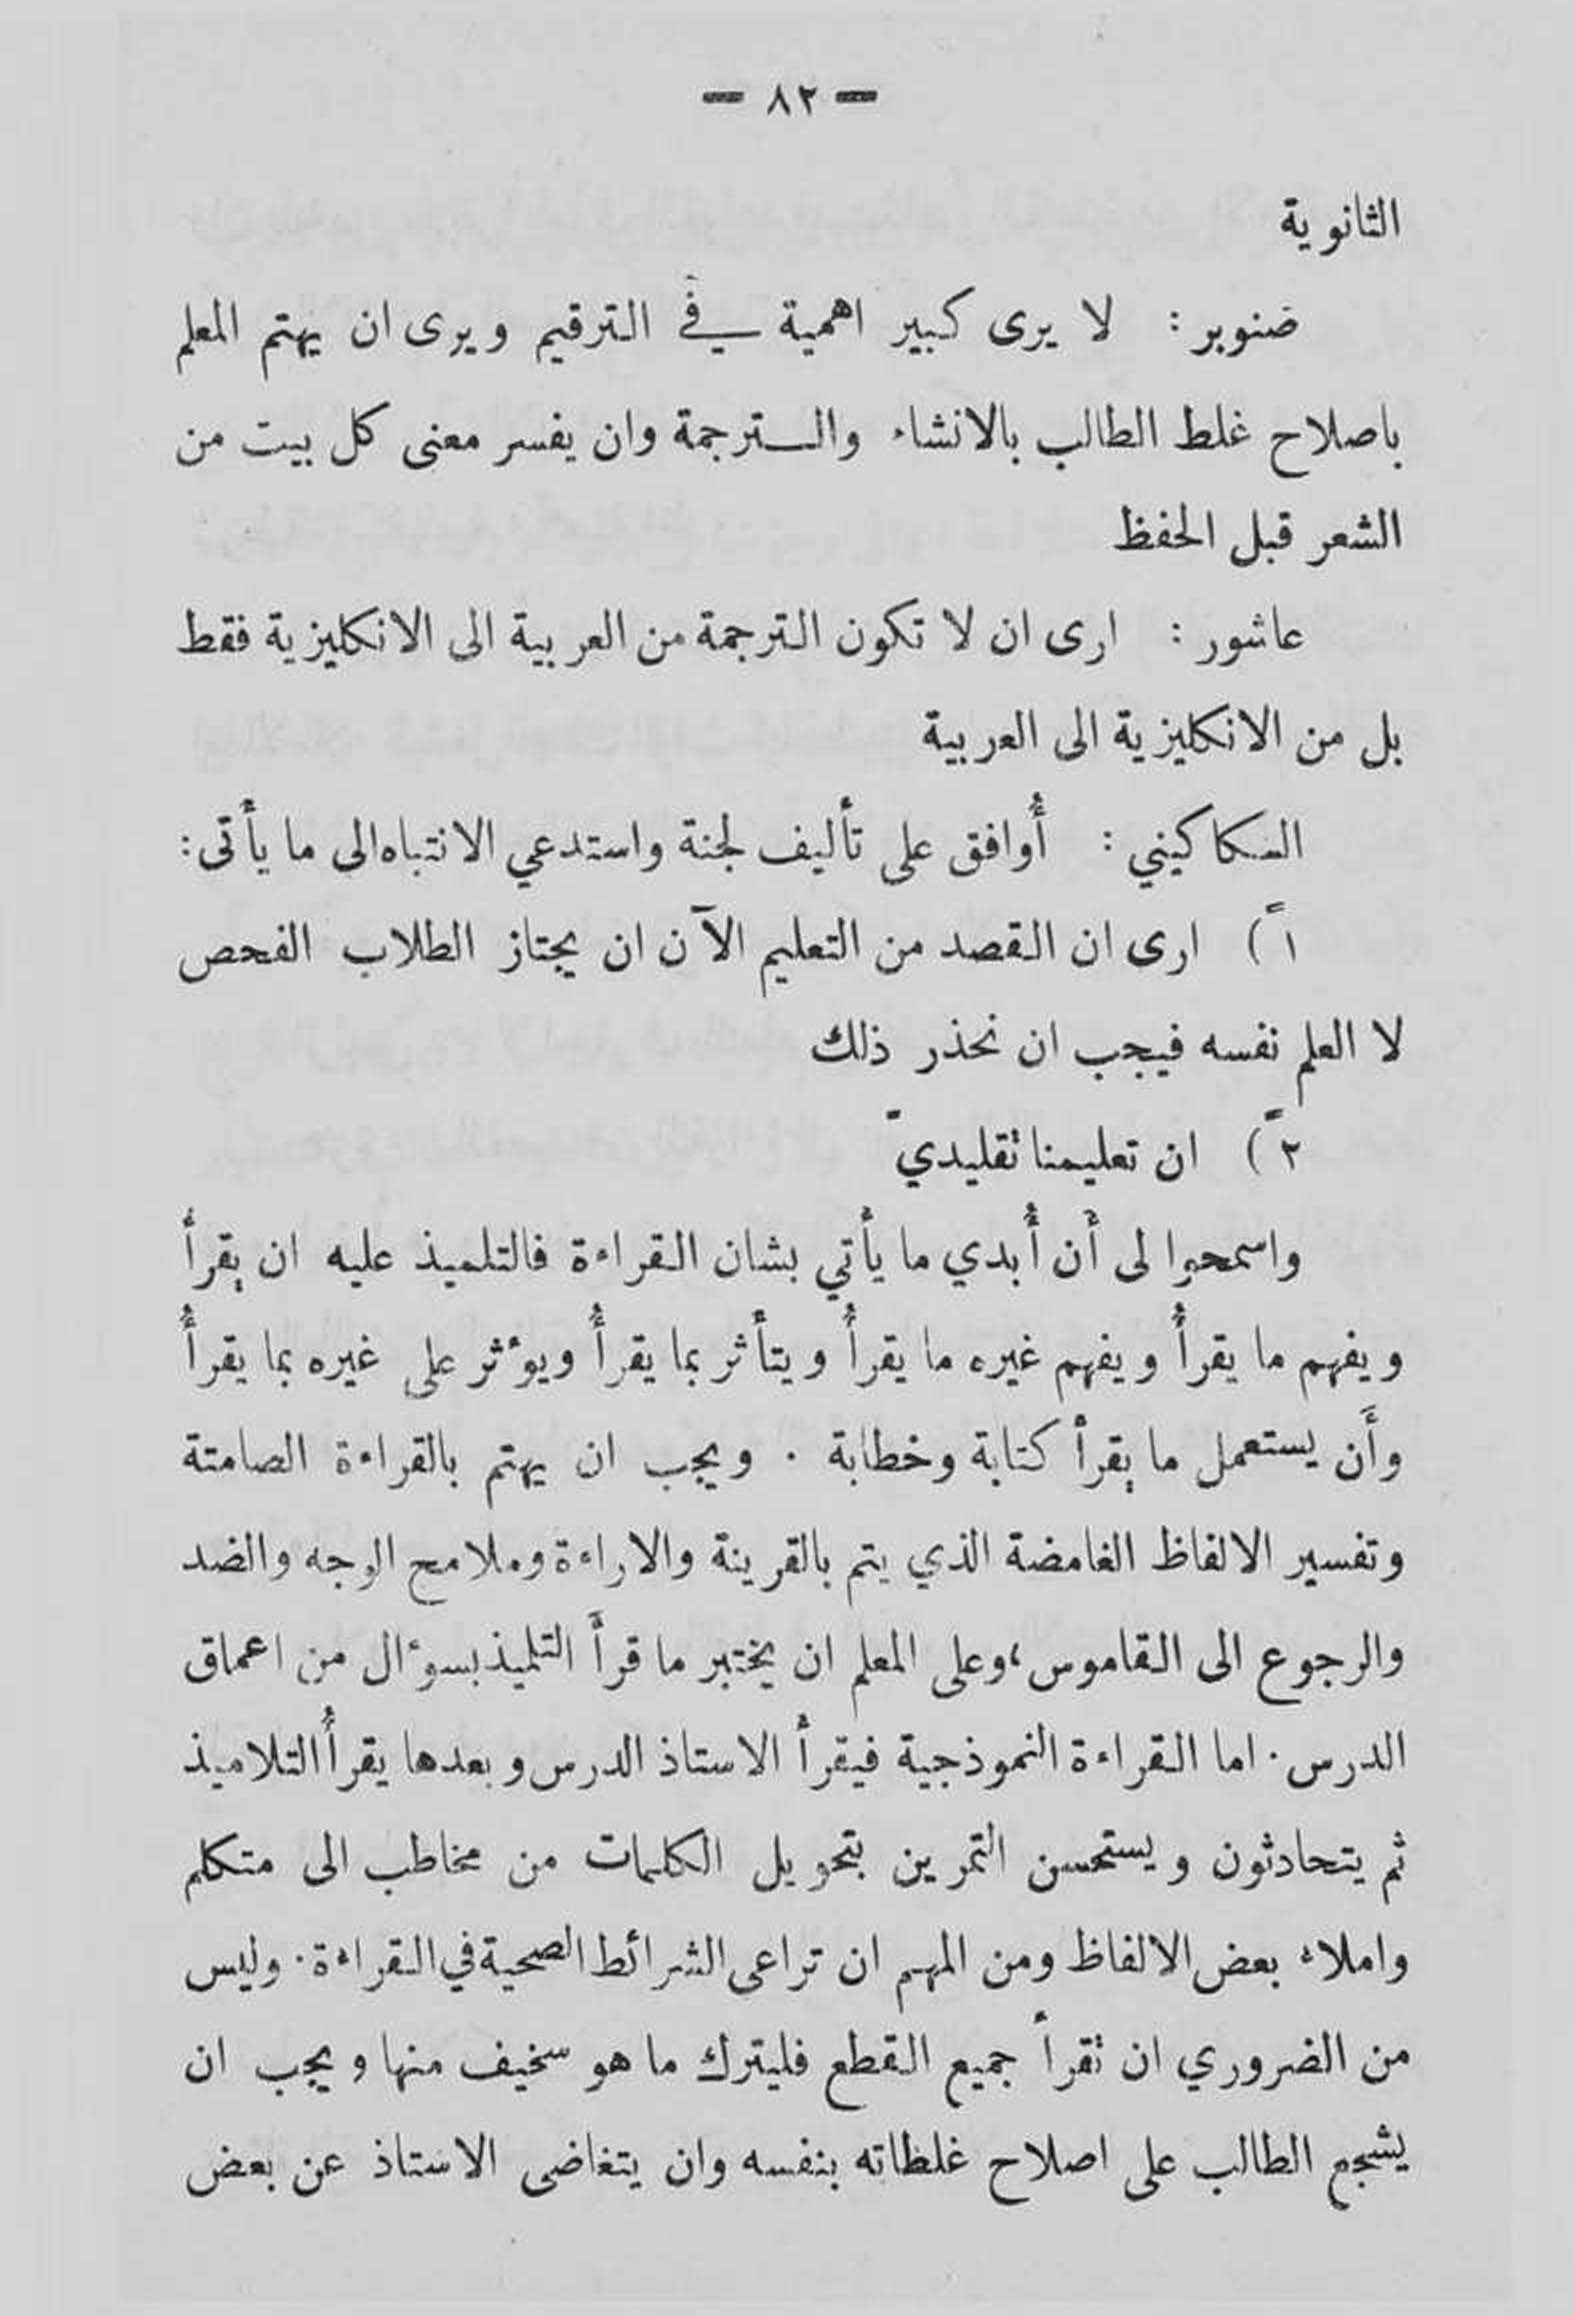 — ٨٢ —
الثانوية
ضنوبر : لا يرى كبير اهمية في الترقيم ويرى ان يهتم المعلم
باصلاح غلط الطالب بالانشاء والترجمة وان يفسر معنى كل بيت من
الشعر قبل الحفظ
عاشور : ارى ان لا تكون الترجمة من العربية الى الانكليزية فقط
بل من الانكليزية الى العربية
السكاكيني : أُوافق على تأليف لجنة واستدعي الانتباه الى ما يأتى :
١ً) ارى ان القصد من التعليم الآن ان يجتاز الطلاب الفحص
لا العلم نفسه فيجب ان نحذر ذلك
٢ً) ان تعليمنا تقليديّ
واسمحوا لى أَن أُبدي ما يأتي بشان القراءة فالتلميذ عليه ان يقرأ
ويفهم ما يقرأُ ويفهم غيره ما يقرأُ ويتأثر بما يقرأُ ويؤثر على غيره بما يقرأُ
وأَن يستعمل ما يقرأ كتابة وخطابة . ويجب ان يهتم بالقراءة الصامتة
وتفسير الالفاظ الغامضة الذي يتم بالقرينة والاراءة وملامح الوجه والضد
والرجوع الى القاموس، وعلى المعلم ان يختبر ما قرأَ التلميذ بسؤال من اعماق
الدرس . اما القراءة النموذجية فيقرأ الاستاذ الدرس وبعدها يقرأُ التلاميذ
ثم يتحادثون ويستحسن التمرين بتحويل الكلمات من مخاطب الى متكلم
واملاء بعض الالفاظ ومن المهم ان تراعى الشرائط الصحية في القراءة . وليس
من الضروري ان تقرأ جميع القطع فليترك ما هو سخيف منها ويجب ان
يشجع الطالب على اصلاح غلطاته بنفسه وان يتغاضى الاستاذ عن بعض